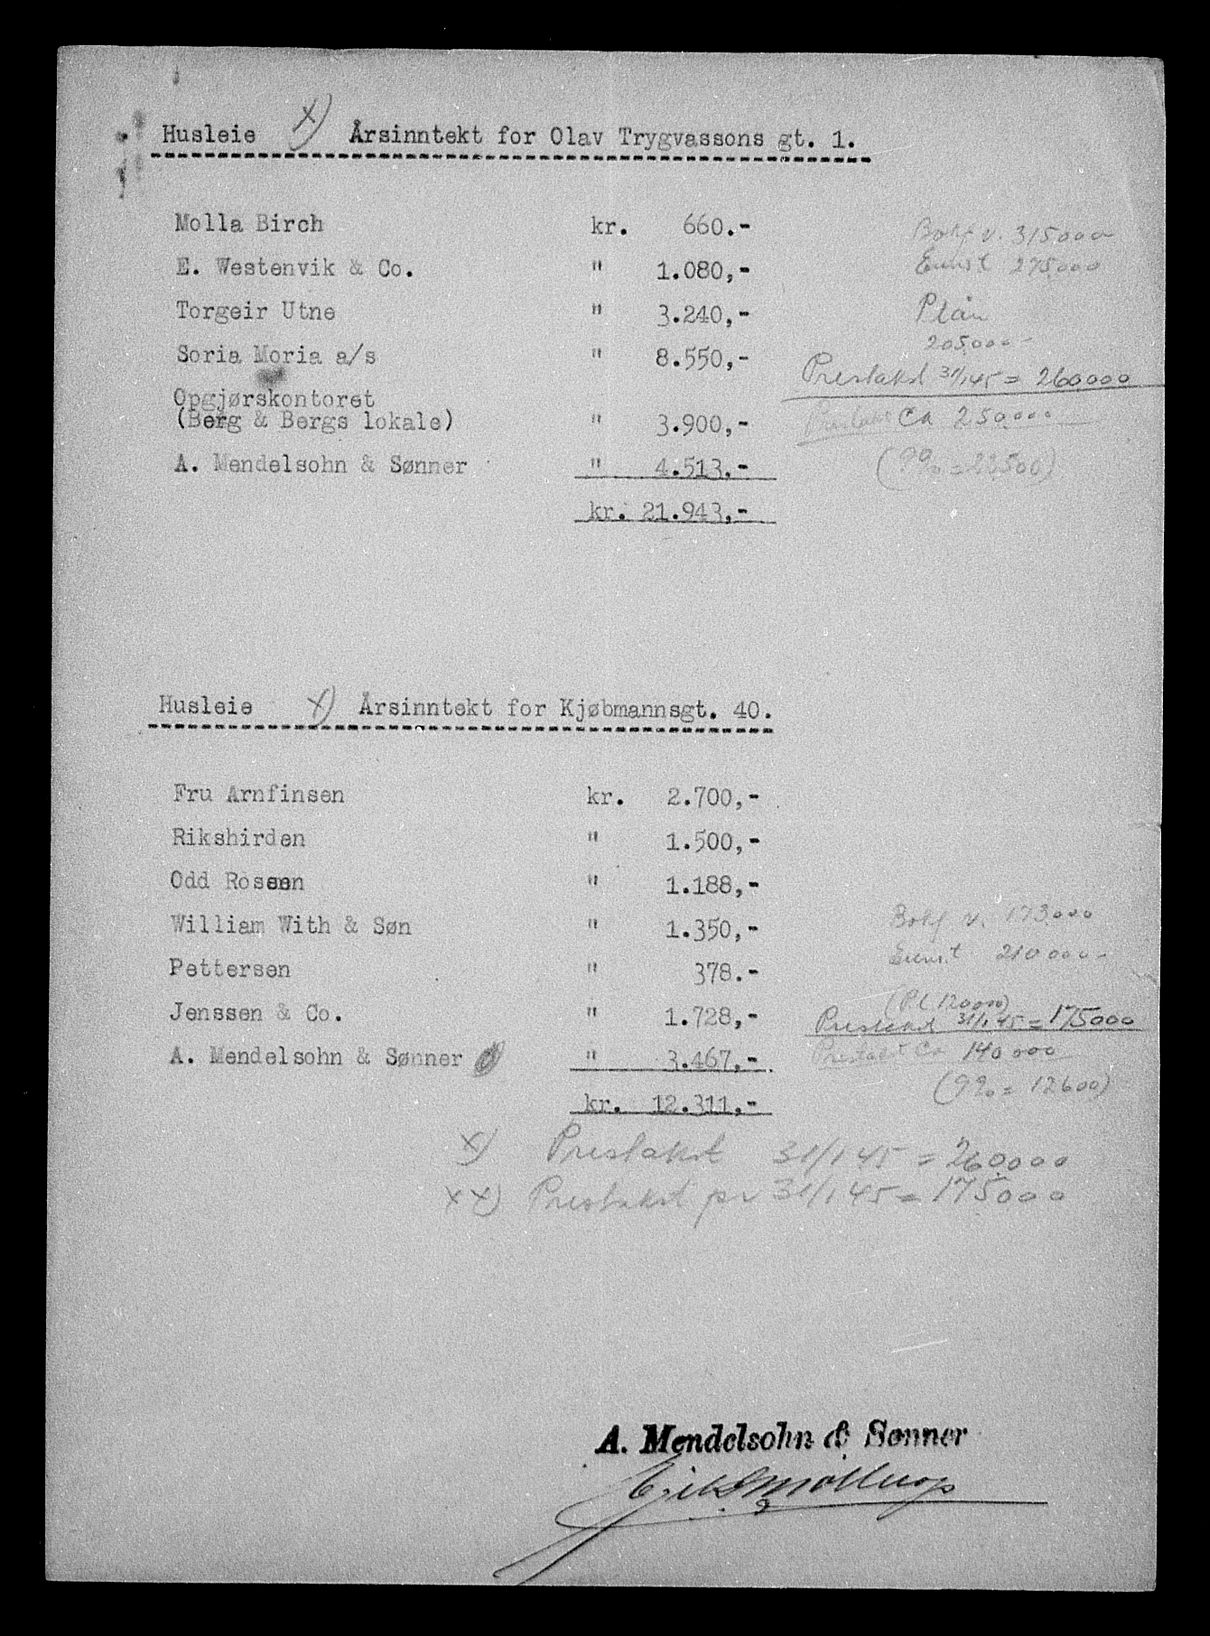 Husleie x) Årsinntekt for Olav Trygvassons gt. 1.
Molla Birch kr. 660.-
E. Westenvik & Co. " 1.080,-
Torgeir Utne " 3.240,-
Soria Moria a/s " 8.550,-
Opgjørskontoret
(Berg & Bergs lokale) " 3.900,-
A. Mendelsohn & Sønner " 4.513.-
kr. 21.943,-
Bokf v. 315000-
275000
Plan
205000-
Pristakst 31/1 45 = 260000
Pristakst ca 250000
(9% = 22500)
Husleie x) Årsinntekt for Kjøbmannsgt. 40.
Fru Arnfinsen kr. 2.700,-
Rikshirden " 1.500,-
Odd Rossen " 1.188,-
William With & Søn " 1.350,-
Pettersen " 378.-
Jenssen & Co. " 1.728,-
A. Mendelsohn & Sønner " 3.467,-
kr. 12.311,-
Bokf v. 173000
210000-
(Pl 120000)
Pristakst 31/1 45 = 175000
Pristakst ca 140000
(9% = 12600)
x) Pristakst 31/1 45 = 260000
xx) Pristakst pr 31/1 45 = 175000
A. Mendelsohn & Sønner